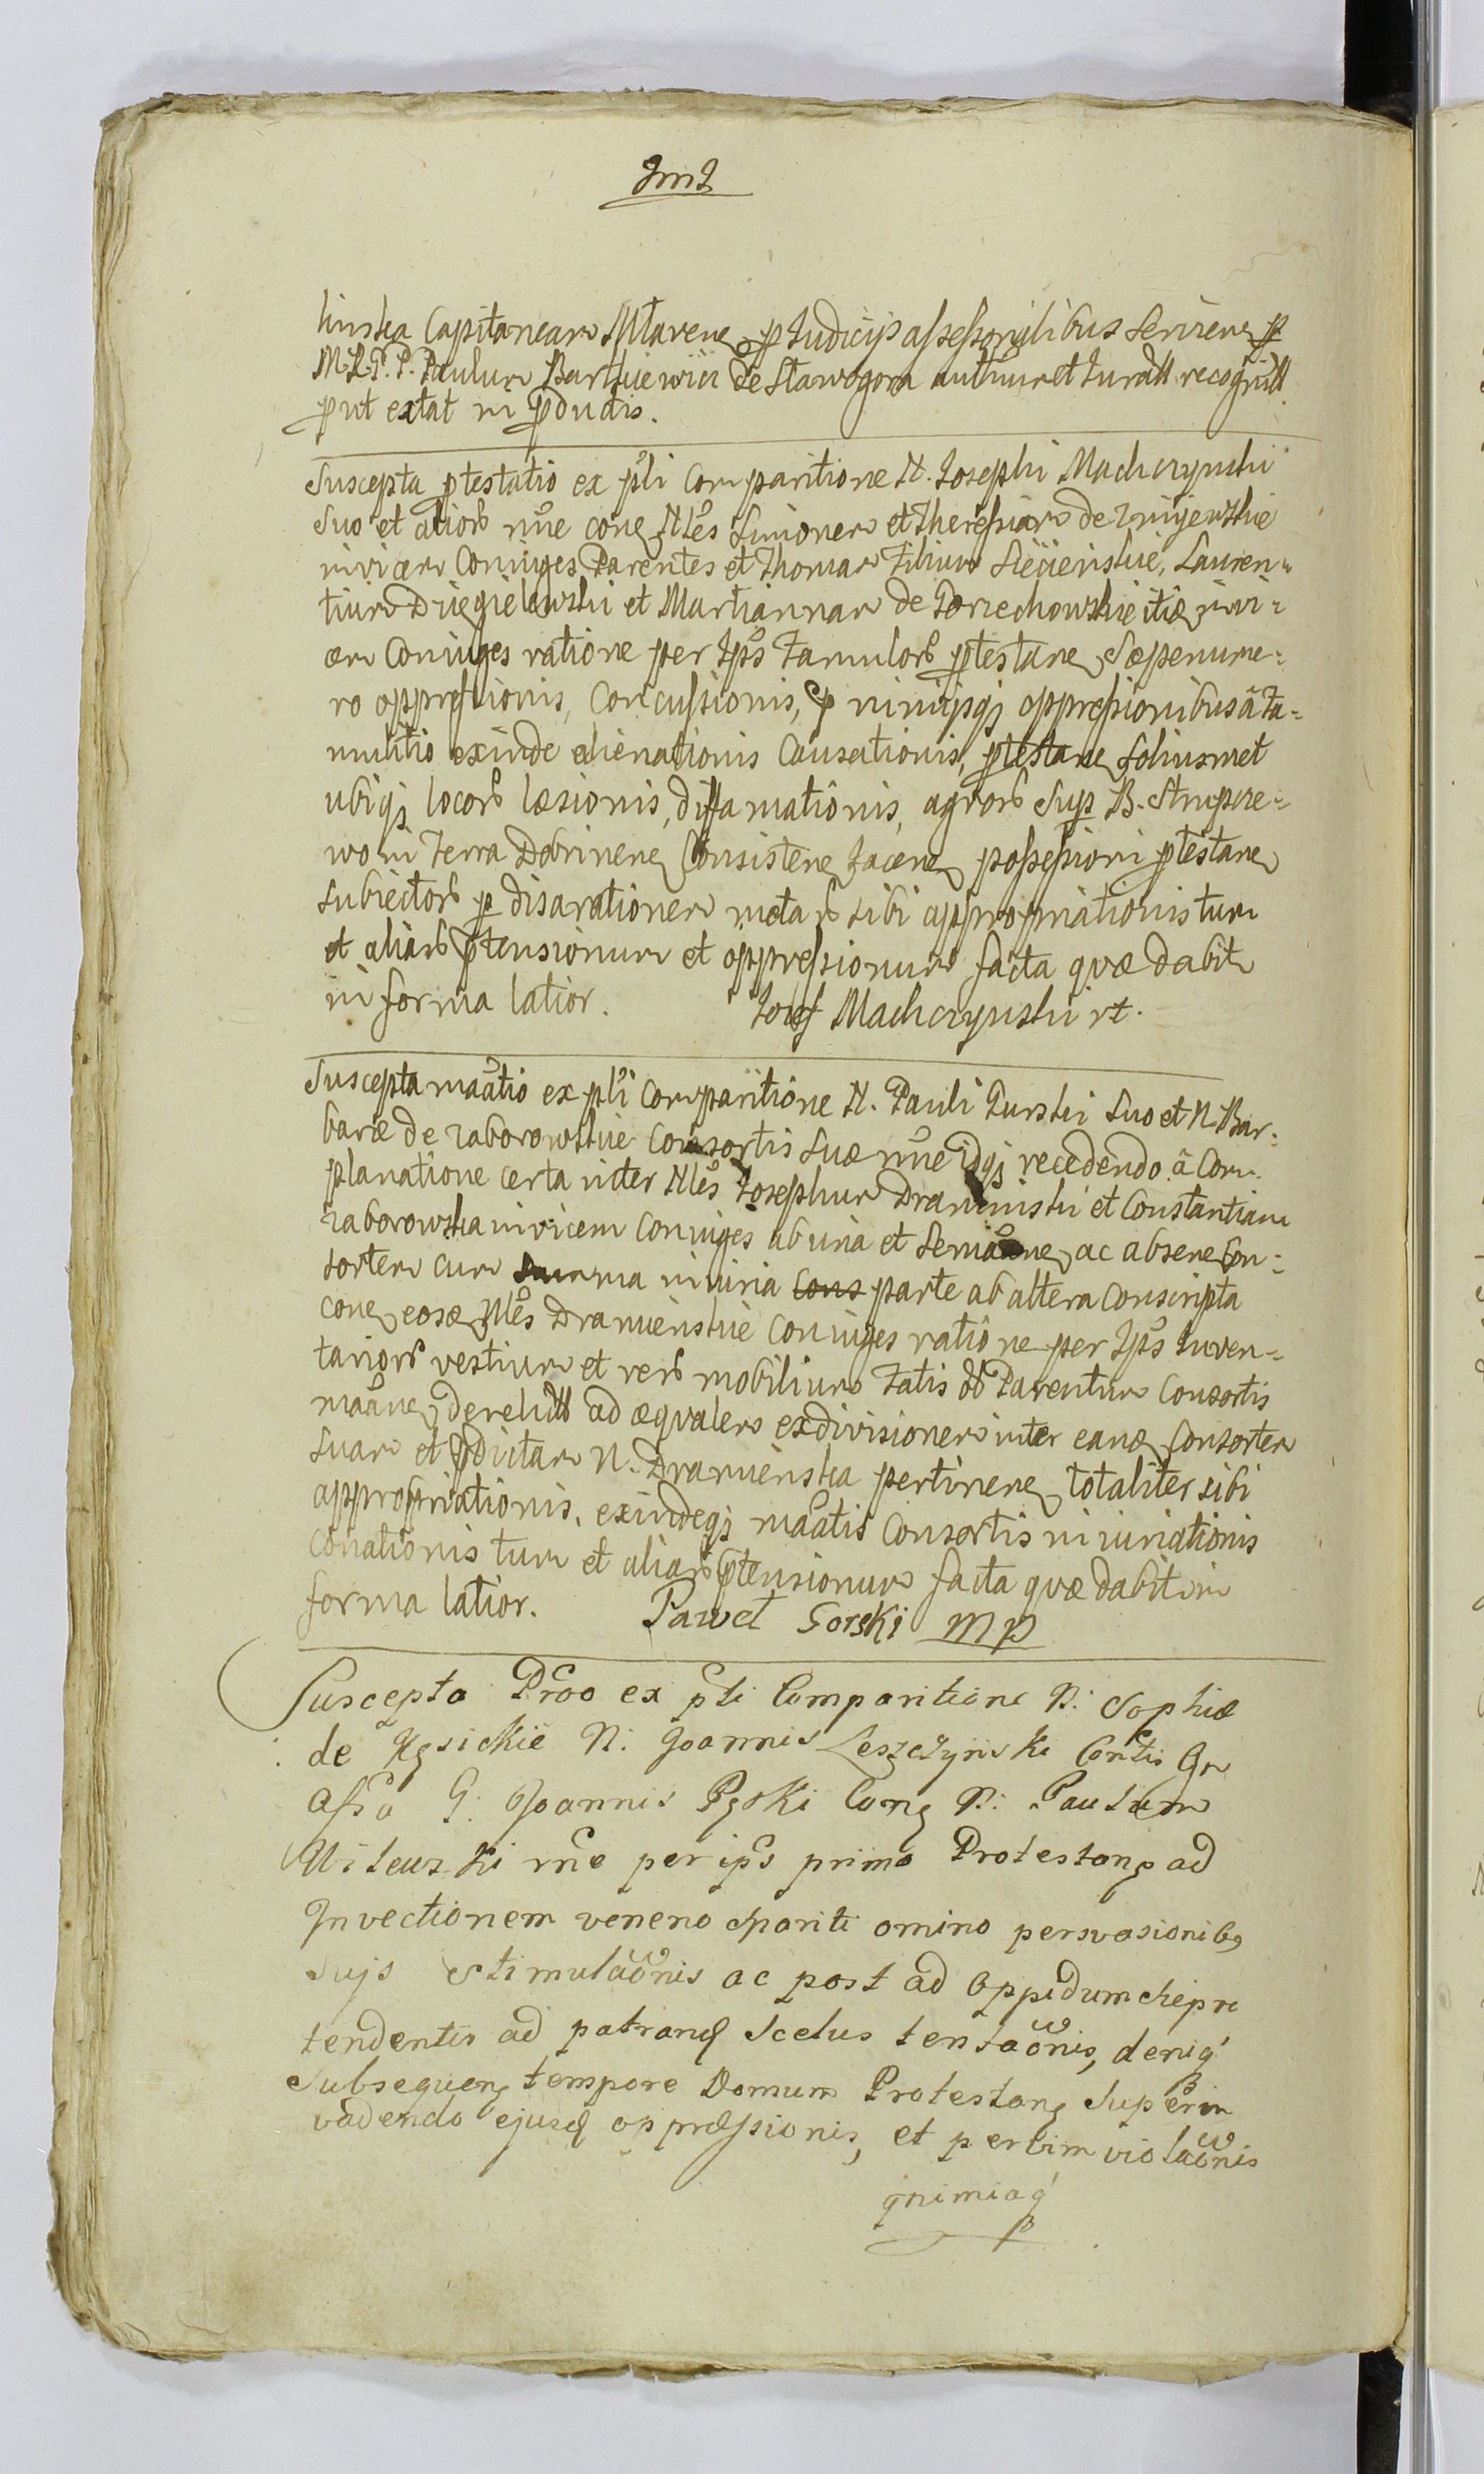 linska Capitanean Mlavene p Judicijs assessorialibus Serviens p
M. R. P. P. Paulum Bartkiewicz de Stawogora authum et Juratt recognitt
put extat in pductis.
Suscepta ptestatio ex psti Comparitione N. Josephi Machczynski
Suo et alior nne cone Nles Simonem et Theressiam de Zmijewskie
invicem Coniuges Parentes et Thomam Filium Siecienskie, Lauren=
tium Dziegielewski et Martiannam de Porzechowskie itid invi=
cem Coniuges ratione per Ips Famulor ptestane Sæpenume=
ro oppressionis, Concussionis, p nimijsq oppressionibus à Fa=
mulitio exinde alienationis Causationis, ptestane Solius met
ubiq locor læsionis, diffamationis, agror Sup B. Strupcze=
wo in Terra Dobrinene Consistene Jacene possessioni ptestane
Subiector p disarationem metar sibi appropriationis tum
et aliar ptensionum et oppressionum facta quæ dabit
in forma latior. Josef Machczynski rt.
Suscepta maãtio ex psti Comparitione N. Pauli Gurski Suo et N. Bar=
baræ de Zaborowskie Consortis Suæ nne idq recedendo à Com=
planatione certa inter Nles Josephum Draminski et Constantiam
Zaborowska invicem Coniuges ab una et Semaãne ac absene Con=
sortem cum Summa iniuria Cons parte ab altera Conscripta
cone eosd Nles Dramienskie Coniuges ratione per Ips Inven=
tarior vestium et rer mobilium Fatis ob Parentum Consortis
maãne derelict ad æqvalem exdivisionem inter eand Consortem
Suam et pdictam N. Dramienska pertinene totaliter sibi
appropriationis, exindeq maãtis Consortis iniuriationis
Conationis tum et aliar ptensionum facta quæ dabit in
forma latior. Paweł Gorski mp
Suscepta Prao ex psti Comparitione N: Sophiæ
de Kęsickie N: Joannis Leszczynski Contis In
Assa G: Joannis Pęski Cong N: Paulum
Milewski rne per ips primo Protestang ad
Invectionem veneno Mariti omino persvasionibq
Sujs Stimulaõnis ac post ad Oppidum Chepri
tendentis ad patrand Scelus tentaõnis, deniq
Subsequeng tempore Domum Protestang Superin
vadendo ejusd oppræssionis, et per vim violaõnis
qnimiaq